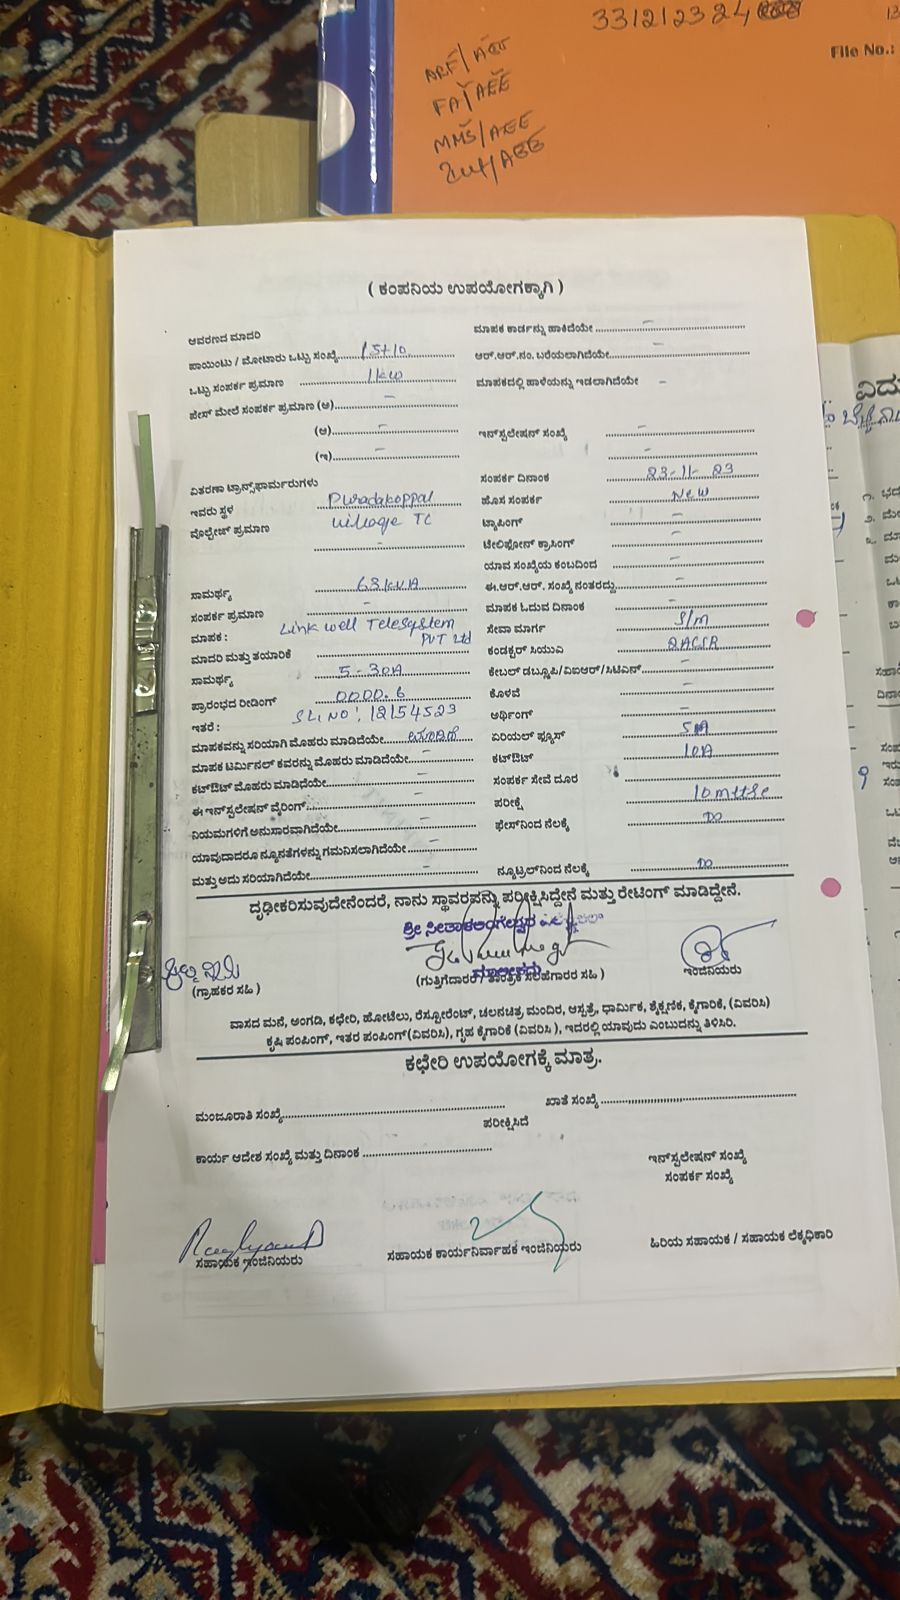 331212324
File No.:
ARF/AEE
FA/AEE
MMS/AEE
( ಕಂಪನಿಯ ಉಪಯೋಗಕ್ಕಾಗಿ )
ಆವರಣದ ಮಾದರಿ
ಮಾಪಕ ಕಾರ್ಡನ್ನು ಹಾಕಿದೆಯೇ –
ಪಾಯಿಂಟು / ಮೋಟಾರು ಒಟ್ಟು ಸಂಖ್ಯೆ
ಆರ್.ಆರ್.ನಂ. ಬರೆಯಲಾಗಿದೆಯೇ –
ಒಟ್ಟು ಸಂಪರ್ಕ ಪ್ರಮಾಣ 1kw
ಮಾಪಕದಲ್ಲಿ ಹಾಳೆಯನ್ನು ಇಡಲಾಗಿದೆಯೇ –
ಫೇಸ್ ಮೇಲೆ ಸಂಪರ್ಕ ಪ್ರಮಾಣ (ಅ) –
(ಆ) – ಇನ್‌ಸ್ಟಲೇಷನ್ ಸಂಖ್ಯೆ –
(ಇ) – –
ವಿತರಣಾ ಟ್ರಾನ್ಸ್‌ಫಾರ್ಮರುಗಳು
ಸಂಪರ್ಕ ದಿನಾಂಕ 23-11-23
ಇವರು ಸ್ಥಳ Puradakoppal
ಹೊಸ ಸಂಪರ್ಕ New
ವೋಲ್ಟೇಜ್ ಪ್ರಮಾಣ village TC
ಟ್ಯಾಪಿಂಗ್ –
– ಟೆಲಿಫೋನ್ ಕ್ರಾಸಿಂಗ್ –
ಯಾವ ಸಂಖ್ಯೆಯ ಕಂಬದಿಂದ –
ಸಾಮರ್ಥ್ಯ 63kVA
ಈ.ಆರ್.ಆರ್. ಸಂಖ್ಯೆ ನಂತರದ್ದು –
ಸಂಪರ್ಕ ಪ್ರಮಾಣ –
ಮಾಪಕ ಓದುವ ದಿನಾಂಕ –
ಮಾಪಕ : Link well Telesystem
PVT Ltd
ಸೇವಾ ಮಾರ್ಗ S/m
ಮಾದರಿ ಮತ್ತು ತಯಾರಿಕೆ
ಕಂಡಕ್ಟರ್ ಸಿಯುವಿ
ಸಾಮರ್ಥ್ಯ 5-30A
ಕೇಬಲ್ ಡಬ್ಲೂಪಿ/ವಿಐಆರ್/ಸಿಟಿಎಸ್ –
ಪ್ರಾರಂಭದ ರೀಡಿಂಗ್ 0000.6
ಕೊಳವೆ –
ಇತರೆ : SL.NO: 12154523
ಅರ್ಥಿಂಗ್ –
ಮಾಪಕವನ್ನು ಸರಿಯಾಗಿ ಮೊಹರು ಮಾಡಿದೆಯೇ
ಏರಿಯಲ್ ಫ್ಯೂಸ್ 5A
ಮಾಪಕ ಟರ್ಮಿನಲ್ ಕವರನ್ನು ಮೊಹರು ಮಾಡಿದೆಯೇ –
ಕಟ್‌ಔಟ್ 10A
ಕಟ್‌ಔಟ್ ಮೊಹರು ಮಾಡಿದೆಯೇ –
ಸಂಪರ್ಕ ಸೇವೆ ದೂರ
ಈ ಇನ್‌ಸ್ಟಲೇಷನ್ ವೈರಿಂಗ್ –
ಪರೀಕ್ಷೆ
ನಿಯಮಗಳಿಗೆ ಅನುಸಾರವಾಗಿದೆಯೇ –
ಫೇಸ್‌ನಿಂದ ನೆಲಕ್ಕೆ DO
ಯಾವುದಾದರೂ ನ್ಯೂನತೆಗಳನ್ನು ಗಮನಿಸಲಾಗಿದೆಯೇ –
ಮತ್ತು ಅದು ಸರಿಯಾಗಿದೆಯೇ –
ನ್ಯೂಟ್ರಲ್‌ನಿಂದ ನೆಲಕ್ಕೆ DO
ದೃಢೀಕರಿಸುವುದೇನೆಂದರೆ, ನಾನು ಸ್ಥಾವರವನ್ನು ಪರೀಕ್ಷಿಸಿದ್ದೇನೆ ಮತ್ತು ರೇಟಿಂಗ್ ಮಾಡಿದ್ದೇನೆ.
ಶ್ರೀ
ಮಾಲೀಕರು
(ಗ್ರಾಹಕರ ಸಹಿ )
(ಗುತ್ತಿಗೆದಾರರ / ತಾಂತ್ರಿಕ ಸಲಹೆಗಾರರ ಸಹಿ )
ಇಂಜಿನಿಯರು
ವಾಸದ ಮನೆ, ಅಂಗಡಿ, ಕಛೇರಿ, ಹೋಟೆಲು, ರೆಸ್ಟೋರೆಂಟ್, ಚಲನಚಿತ್ರ ಮಂದಿರ, ಆಸ್ಪತ್ರೆ, ಧಾರ್ಮಿಕ, ಶೈಕ್ಷಣಿಕ, ಕೈಗಾರಿಕೆ, (ವಿವರಿಸಿ)
ಕೃಷಿ ಪಂಪಿಂಗ್, ಇತರ ಪಂಪಿಂಗ್ (ವಿವರಿಸಿ), ಗೃಹ ಕೈಗಾರಿಕೆ (ವಿವರಿಸಿ ), ಇದರಲ್ಲಿ ಯಾವುದು ಎಂಬುದನ್ನು ತಿಳಿಸಿರಿ.
ಕಛೇರಿ ಉಪಯೋಗಕ್ಕೆ ಮಾತ್ರ.
ಮಂಜೂರಾತಿ ಸಂಖ್ಯೆ
ಖಾತೆ ಸಂಖ್ಯೆ
ಪರೀಕ್ಷಿಸಿದೆ
ಕಾರ್ಯ ಆದೇಶ ಸಂಖ್ಯೆ ಮತ್ತು ದಿನಾಂಕ
ಇನ್‌ಸ್ಟಲೇಷನ್ ಸಂಖ್ಯೆ
ಸಂಪರ್ಕ ಸಂಖ್ಯೆ
ಸಹಾಯಕ ಇಂಜಿನಿಯರು
ಸಹಾಯಕ ಕಾರ್ಯನಿರ್ವಾಹಕ ಇಂಜಿನಿಯರು
ಹಿರಿಯ ಸಹಾಯಕ / ಸಹಾಯಕ ಲೆಕ್ಕಧಿಕಾರಿ